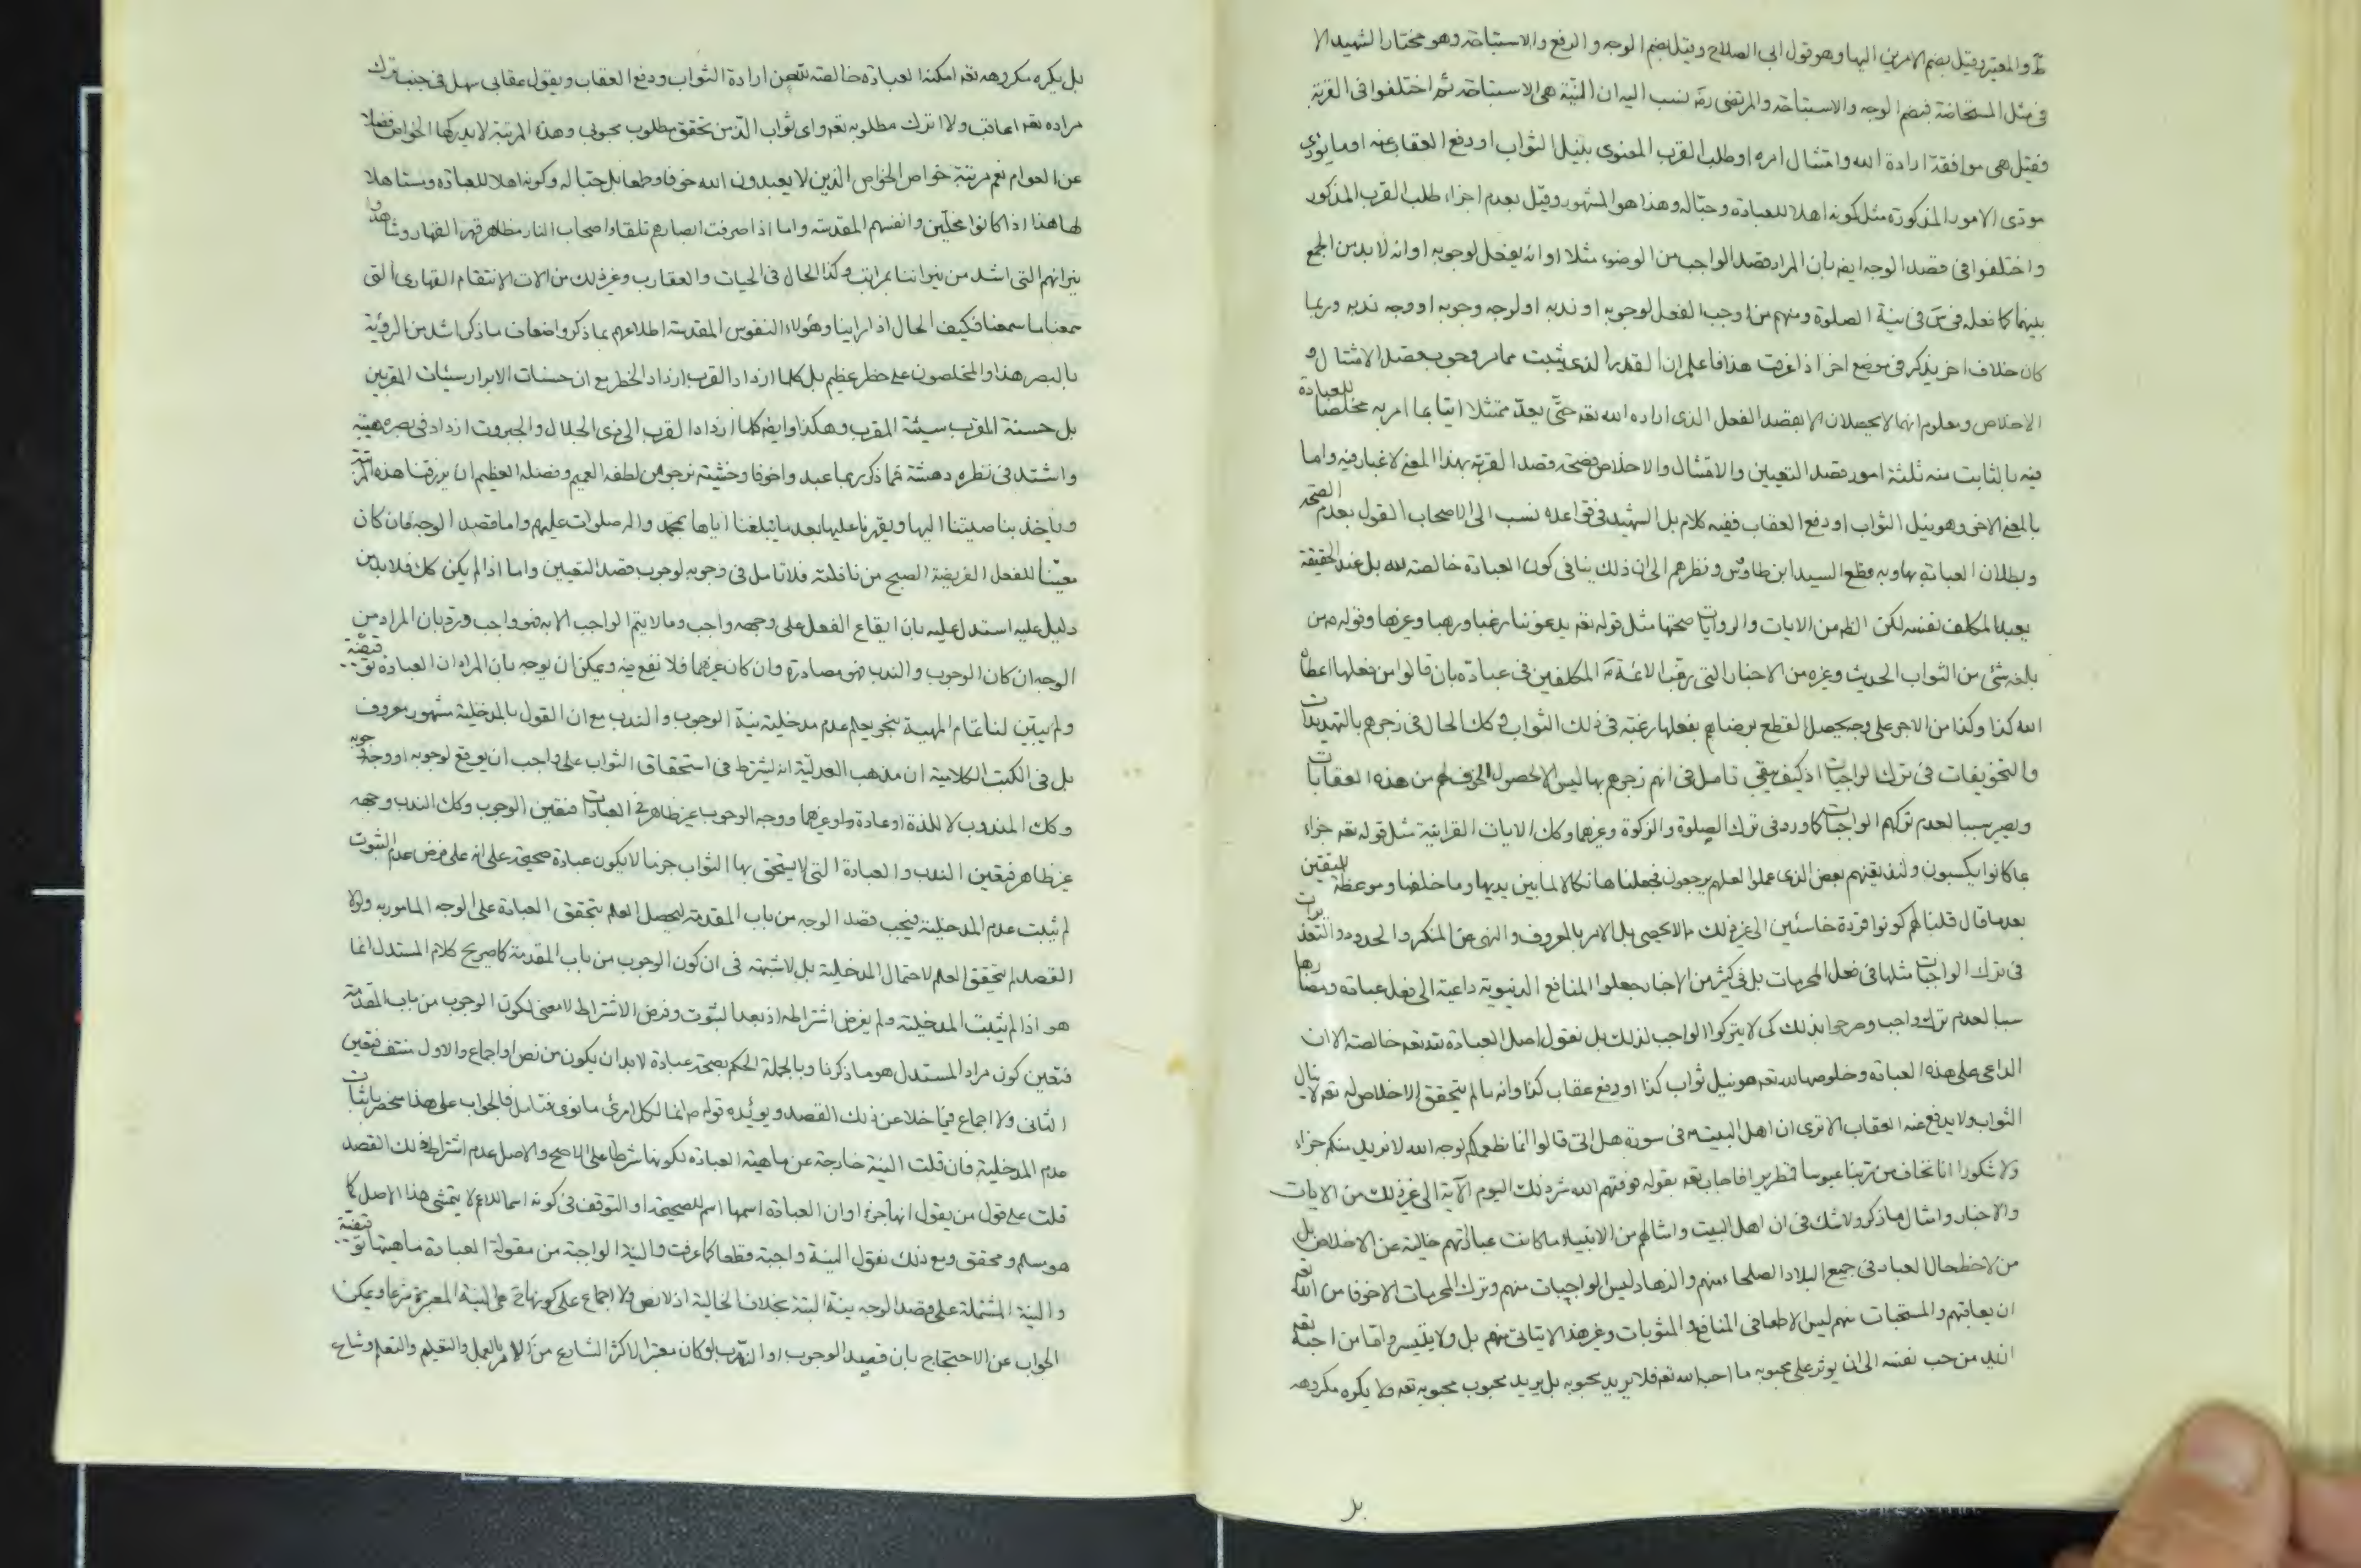 ط والمعتبر وقيل بضم الامرين اليها وهو قول ابى الصلاح وقيل بضم الوجه والرفع والاستباحة وهو مختار الشهيد الا
فى مثل المستحاضة فبضم الوجه والاستباحة والمرتضى ره نسب اليه ان النية هى الاستباحة ثم اختلفوا فى القربة
فقيل هى موافقة ارادة الله وامتثال امره او طلب القرب المعنوى بنيل الثواب او دفع العقاب عنه او ما يودى
مودى الامور المذكورة مثل كونه اهلا للعبادة وحبا له وهذا هو المشهور وقيل بعدم اجزاء طلب القرب المذكور
واختلفوا فى قصد الوجه ايضا بان المراد قصد الواجب من الوضوء مثلا او انه يفعل لوجوبه او انه لا بد من الجمع
بينهما كما فعله فى س فى نية الصلوة ومنهم من اوجب الفعل لوجوبه او ندبه او لوجه وجوبه او وجه ندبه وربما
كان خلاف اخر يذكر فى موضع اخر اذا عرفت هذا فاعلم ان القدر الذى يثبت مما مر وجوب بقصد الامتثال و
الاخلاص ومعلوم انهما لا يحصلان الا بقصد الفعل الذى اراده الله تعه حتى يعد ممتثلا اتيا بما امر به مخلصا للعبادة
فيه بالثابت منه ثلثة امور قصد التعيين والامتثال والاخلاص فصحة قصد القربة بهذا المعنى لا غبار فيه واما
بالمعنى الاخر وهو نيل الثواب او دفع العقاب ففيه كلام بل الشهيد فى قواعده نسب الى الاصحاب القول بعدم الصحة
وبطلان العبادة بها وبه قطع السيد ابن طاوس ونظرهم الى ان ذلك ينافى كون العبادة خالصة لله بل عند الحقيقة
يعبد المكلف نفسه لكن الظ من الايات والروايات صحتها مثل قوله تعه يدعوننا رغبا ورهبا وغيرها وقوله ص من
بلغه شئ من الثواب الحديث وغيره من الاخبار التى رغب الائمة ع المكلفين فى عبادة بان قالوا من فعلها اعطاه
الله كذا وكذا من الاجر على وجه يحصل القطع برضاهم بفعلها رغبة فى ذلك الثواب وكك الحال فى زجرهم بالتهديدات
والتخويفات فى ترك الواجبات اذ كيف يبقى تامل فى انهم زجرهم بها ليس الا لحصول الخوف لهم من هذه العقابات
ويصير سببا لعدم تركهم الواجبات كما ورد فى ترك الصلوة والزكوة وغيرهما وكك الايات القرانية مثل قوله تعه جزاء
بما كانوا يكسبون ولنذيقنهم بعض الذى عملوا لعلهم يرجعون فجعلناها نكالا لما بين يديها وما خلفها وموعظة للمتقين
بعد ما قال قلنا لهم كونوا قردة خاسئين الى غير ذلك مما لا يحصى بل الامر بالمعروف والنهى عن المنكر والحدود والتعذيرات
فى ترك الواجبات مثلها فى فعل المحرمات بل فى كثير من الاخبار جعلوا المنافع الدنيوية داعية الى فعل عبادة ومضارها
سببا لعدم ترك واجب وصرحوا بذلك كى لا يتركوا الواجب لذلك بل نقول اصل العبادة لله تعه خالصة الا ان
الداعى على هذه العبادة وخلوصها لله تعه هو نيل ثواب كذا او دفع عقاب كذا وانه ما لم يتحقق الاخلاص له تعه لا ينال
الثواب ولا يدفع عنه العقاب الا ترى ان اهل البيت ع فى سورة هل اتى قالوا انما نطعمكم لوجه الله لا نريد منكم جزاء
ولا شكورا انا نخاف من ربنا عبوسا قمطريرا فاجاب تعه بقوله فوقيهم الله شر ذلك اليوم الآية الى غير ذلك من الايات
والاخبار وامثال ما ذكر ولا شك فى ان اهل البيت وامثالهم من الانبياء ما كانت عبادتهم خالية عن الاخلاص بل
من لاحظ حال العباد فى جميع البلاد الصلحاء منهم والزهاد ليس الواجبات منهم وترك المحرمات الا خوفا من الله تعه
ان يعاقبهم والمستحبات منهم ليس الا طمعا فى المنافع والمثوبات وغير هذا لا يتاتى منهم بل ولا يتيسر واما من احب الله تعه
ازيد من حب نفسه الى ان يوثر على محبوبه ما احب الله تعه فلا يريد محبوبه بل يريد محبوب محبوبه تعه ولا يكره مكروهه
بل
بل يكره مكروهه تعه امكنه العبادة خالصة عن ارادة الثواب ودفع العقاب ويقول عقابى سهل فى جنب ترك
مراده تعه اعاقب ولا اترك مطلوبه تعه واى ثواب الذ من تحقق مطلوب محبوبى وهذه المرتبة لا يدركها الخواص فضلا
عن العوام نعم مرتبة خواص الخواص الذين لا يعبدون الله خوفا وطمعا بل حبا له وكونه اهلا للعبادة ومستاهلا
لها هذا اذا كانوا مخلين وانفسهم المقدسة واما اذا صرفت ابصارهم تلقاء اصحاب النار مظاهر قهر القهار وشاهدوا
نيرانهم التى اشد من نيراننا بمراتب وكذا الحال فى الحيات والعقارب وغير ذلك من الات الانتقام القهارى التى
سمعنا ما سمعنا فكيف الحال اذا راينا وهؤلاء النفوس المقدسة اطلاعهم بما ذكر واضعاف ما ذكر اشد من الروئية
بالبصر هذا والمخلصون على خطر عظيم بل كلما ازداد القرب ازداد الخطر مع ان حسنات الابرار سيئات المقربين
بل حسنة المقرب سيئة المقرب وهكذا وايضا كلما ازداد القرب الى ذى الجلال والجبروت ازداد فى بصره هيبة
واشتد فى نظره دهشة مما ذكر ربما عبد واخوفا وخشية نرجو من لطفه العميم وفضله العظيم ان يرزقنا هذه المرتبة
وياخذ بناصيتنا اليها ويقهرنا عليها بعد ما يبلغنا اياها بمحمد واله صلوات عليهم واما قصد الوجه فان كان
معينا للفعل الفريضة الصبح من نافلته فلا تامل فى وجوبه لوجوب قصد التعيين واما اذا لم يكن كك فلا بد من
دليل عليه استدل عليه بان ايقاع الفعل على وجهه واجب وما لا يتم الواجب الا به فهو واجب ورد بان المراد من
الوجه ان كان الوجوب والندب فهو مصادرة وان كان غيرهما فلا نفع فيه ويمكن ان يوجه بان المراد ان العبادة توقيفية
ولم يتبين لنا تمام المهية بنحو يعلم عدم مدخلية نية الوجوب والندب مع ان القول بالمدخلية مشهور معروف
بل فى الكتب الكلامية ان مذهب العدلية انه يشترط فى استحقاق الثواب على واجب ان يوقع لوجوبه او وجه وجوبه
وكك المندوب لا للذة او عادة او غيرهما ووجه الوجوب غير ظاهر فى العبادات فتعين الوجوب وكك الندب وجهه
غير ظاهر فتعين الندب والعبادة التى لا يستحق بها الثواب جزما لا يكون عبادة صحيحة على انه على فرض عدم الثبوت
لم يثبت عدم المدخلية فيجب قصد الوجه من باب المقدمة ليحصل العلم بتحقق العبادة على الوجه المامور به ولولا
القصد لم يتحقق العلم لاحتمال المدخلية بل لا شبهة فى ان كون الوجوب من باب المقدمة كما صريح كلام المستدل انما
هو اذا لم يثبت المدخلية ولم يفرض اشتراطه اذ بعد الثبوت وفرض الاشتراط لا معنى لكون الوجوب من باب المقدمة
فتعين كون مراد المستدل هو ما ذكرنا وبالجملة الحكم بصحة عبادة لا بد ان يكون من نص او اجماع والاول منتف فتعين
الثانى ولا اجماع فيما خلا عن ذلك القصد ويوئيده قوله ص انما لكل امرئ ما نوى فتامل فالجواب على هذا منحصر باثبات
عدم المدخلية فان قلت النية خارجة عن ماهية العبادة لكونها شرطا على الاصح والاصل عدم اشتراط ذلك القصد
قلت على قول من يقول انها جزء او ان العبادة اسمها اسم للصحيحة او التوقف فى كونه اسما للاعم لا يتمشى هذا الاصل كما
هو مسلم ومحقق ومع ذلك نقول النية واجبة قطعا كما عرفت والنية الواجبة من مقولة العبادة ماهيتها توقيفية
والنية المشتملة على قصد الوجه نية البتة بخلاف الخالية اذ لا نص ولا اجماع على كونها هى النية المعتبرة شرعا ويمكن
الجواب عن الاحتجاج بان قصد الوجوب او الندب لو كان معتبرا لاكثر الشارع من الامر بالعمل والتعليم والتعلم وشاع